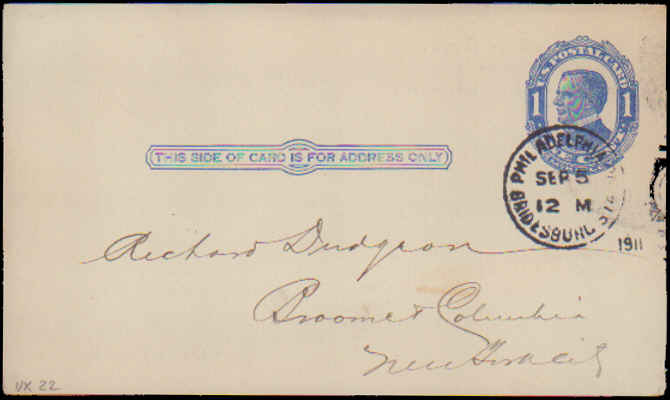 U.S. POSTAL CARD
1 1
THIS SIDE OF CARD IS FOR ADDRESS ONLY
PHILADELPHIA
SEP 5
12 M
BRIDESBURG STA.
1911
Richard Dudgeon
Broome & Columbia
New York City
UX 22